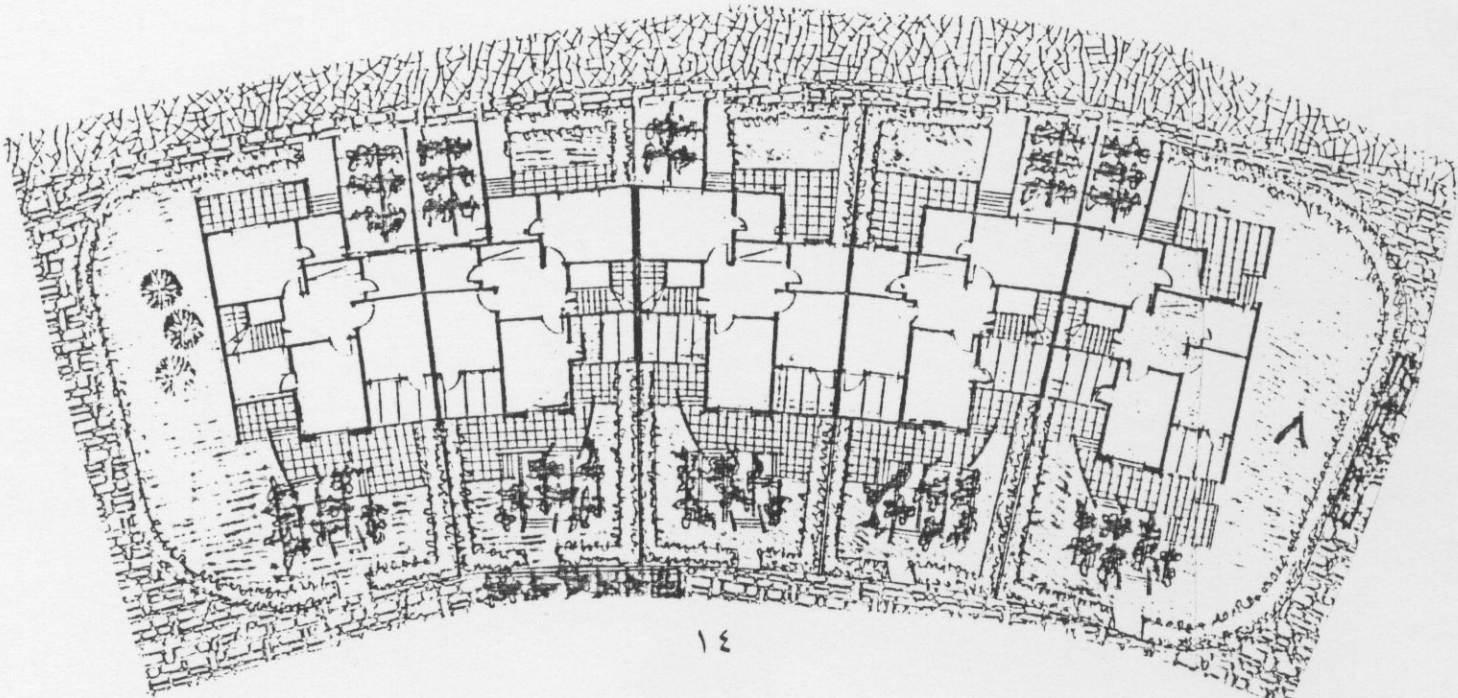 ٨
١٤